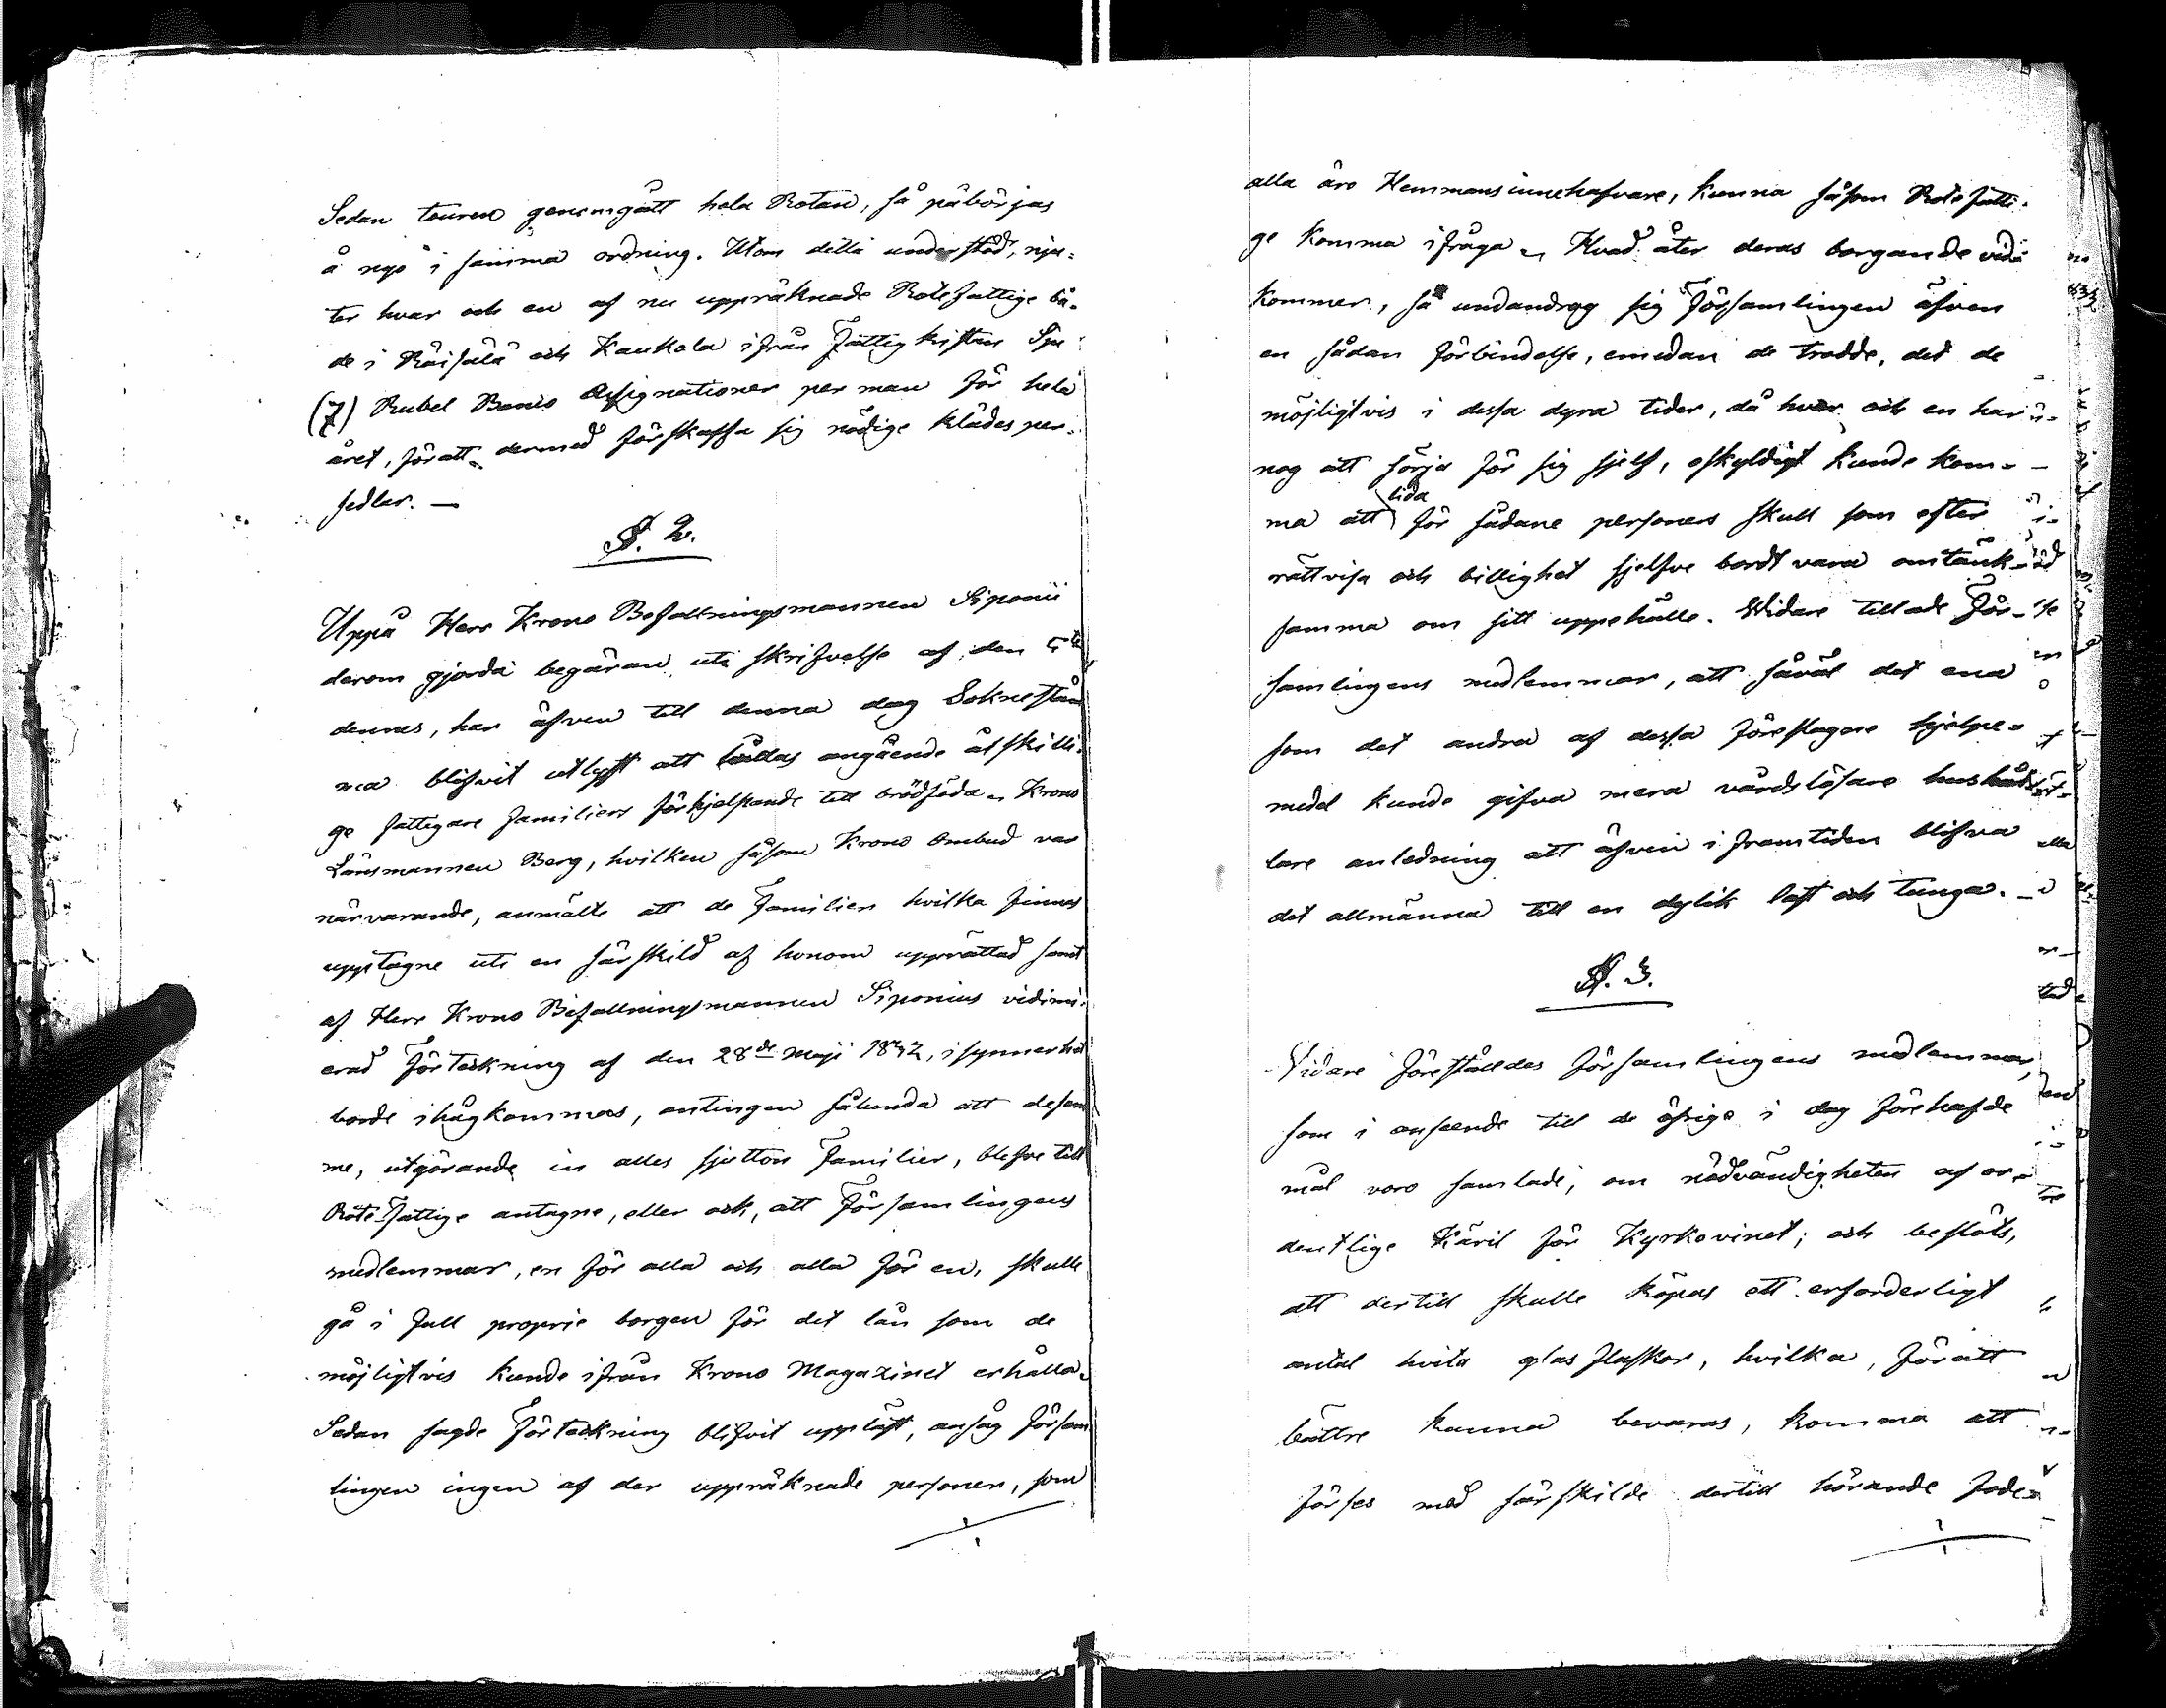 Sedan touren genomgått hela Rotan, så påbörjas
å nyo i samma ordning. Utom detta understöd, nju-
ter hvar och en af nu uppräknade Rotefattige bå-
de i Räisälä och Kaukola ifrån Fattigkistan Sju
(7) Rubel Banco Assignationer per man för hela
året, för att dermed förskaffa sig nödige klädesper-
sedlar. —
§. 2.
Uppå Herr Krono Befallningsmannen Siponii
derom gjorda begäran uti skrifvelse af den
dennes, har äfven till denna dag Sokneståm
ma blifvit utlyst att hållas angående åtskilli-
ge fattigare familiers förhjelpande till brödföda. Krono
Länsmannen Berg, hvilken såsom Krono Ombud var
närvarande, anmälte att de Familier hvilka finnas
upptagne uti en särskild af honom upprättad samt
af Herr Krono Befallningsmannen Siponius vidimi-
erad Förtekning af den 28de Maji 1832, i synnerhet
borde ihågkommas, antingen sålunda att desam
me, utgörande in alles sjutton Familier, blefve till
Rote-Fattige antagne, eller ock, att Församlingens
medlemmar, en för alla och alla för en, skulle
gå i full proprie borgen för det lån som de
möjligtvis kunde ifrån Krono Magazinet erhålla.
Sedan sagde Förteckning blifvit uppläst, ansåg Försam
lingen ingen af der uppräknade personer, som
alla äro Hemmansinnehafvare, kunna såsom Rotefatti-
ge komma ifråga. Hvad åter deras borgande vid
kommer, så undandrog sig Församlingen äfven
en sådan förbindelse, emedan de trodde, det de
möjligtvis i dessa dyra tider, då hvar och en har
nog att sörja för sig sjelf, oskyldigt kunde kom-
ma att lida för sådane personers skull som efter
rättvisa och billighet sjelfve bordt vara omtänk-
samma om sitt uppehälle. Widare tillade För-
samlingens medlemmar, att såväl det ena
som det andra af dessa föreslagne hjelpe-
medel kunde gifva mera vårdslösare hushål
lare anledning att äfven i framtiden blifva
det allmänna till en dylik last och tunga. —
§. 3.
Vidare föreställdes församlingens medlemmar,
som i anseende till de öfrige i dag förehafde
mål voro samlade, om nödvändigheten af or-
dentlige Käril för Kyrkovinet; och beslöts,
att dertill skulle köpas ett erforderligt
antal hvita glas flaskor, hvilka, för att
bättre kunna bevaras, komma att
förses med särskilde dertill hörande fode-